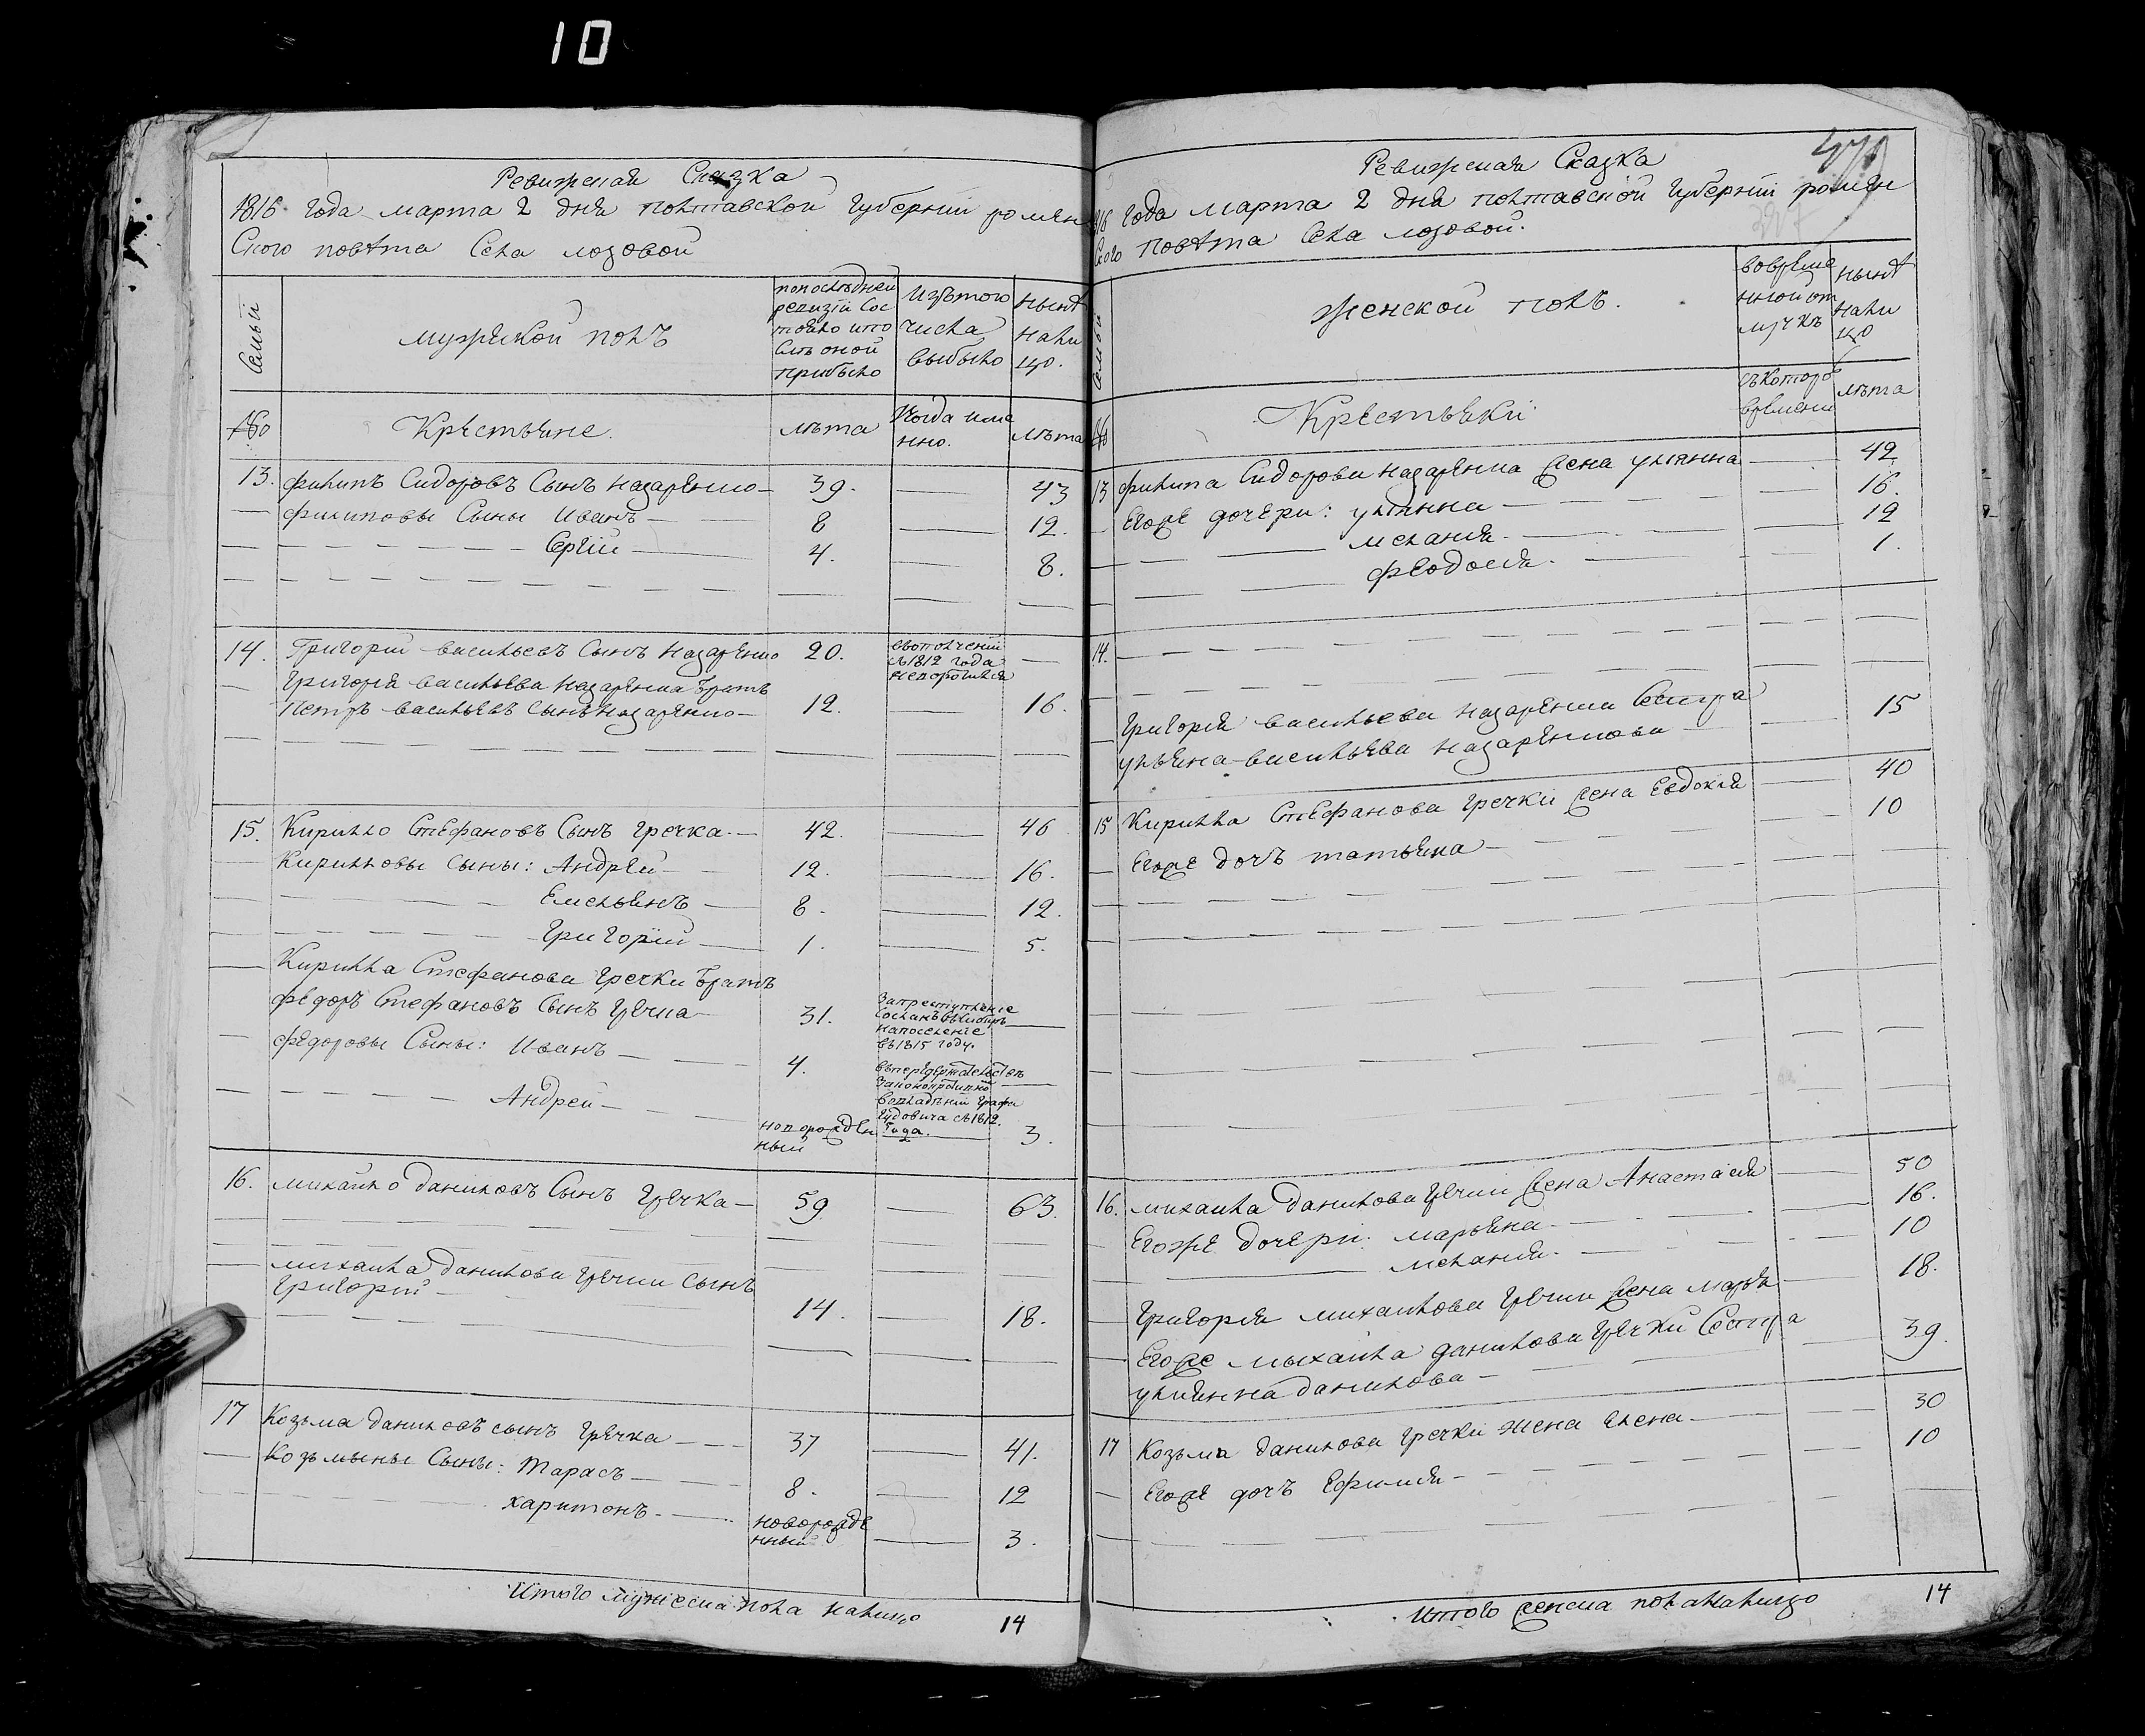 10
Ревижская Сказка
1816 года марта 2 дня полтавской Губерніи ромен
ского повѣта Села лозовой
Семьи
мужеской полъ
попослѣдней ревизіи сос тояло ипо слѣ оной прибыло
Изътого числа выбыло
нынѣ нали цо.
№
Крестьяне.
лѣта
Когда име нно.
лѣта
13. филипъ Сидоровъ Сынъ назаренко 39. 43
филиповы Сыны Иванъ 8 12.
Сергій 4. 8.
14. Григорій васильевъ Сынъ Назаренко 20. вополченіи съ1812 года
Григорія васильева Назаренка братъ
Петръ васильевъ сынъ Назаренко 12. 16.
15. Кирилло Стефановъ Сынъ гречка 42. 46
Кирилловы сыны: Андрей 12. 16.
Емельянъ 8. 12.
Григорій 1. 5.
Кирилла Стефанова гречки братъ
федоръ Стефановъ Сынъ гречка 31. Запреступленіе Сосланъ въсибирь напоселеніе въ1815 году.
федоровы Сыны: Иванъ 4. графа Гудовича съ1812. года.
Андрей новорожден ный 3.
16. михайло даниловъ Сынъ гречка 59 63.
михайла данилова гречки сынъ
Григорій 14. 18.
17 Козьма даниловъ сынъ гречка 37 41.
Козьмыны Сыны: Тарасъ 8. 12
харитонъ новорожде нный 3.
Итого мужеска пола налицо 14
Ревижская Сказка
816 года марта 2 дня полтавской Губерніи ромен
ского Повѣта Села лозовой.
Семьи
Женской полъ.
вовреме нной от лучкѣ
нынѣ нали цо
№
Крестьянки
съкотораго времени
лѣта
13 филипа Сидорова назаренка жена ульянна 42
Егоже дочери: ульянна 16.
меланія 12
феодосія 1.
14.
Григорія васильева назаренка Сестра
ульяна васильева назаренкова 15
15 Кирилла Стефанова гречки жена Евдокія 40
Егоже дочъ татьяна 10
16. михайла данилова гречки жена Анастасія 50
Егоже дочери: марьяна 16.
меланія 10
Григорія михайлова гречки жена марья 18.
Егоже мыхайла данилова гречки Сестра
ульянна данилова 39.
17 Козьма данилова гречки жена Елена 30
Егоже дочъ Ефимія 10
Итого женска пола налицо 14